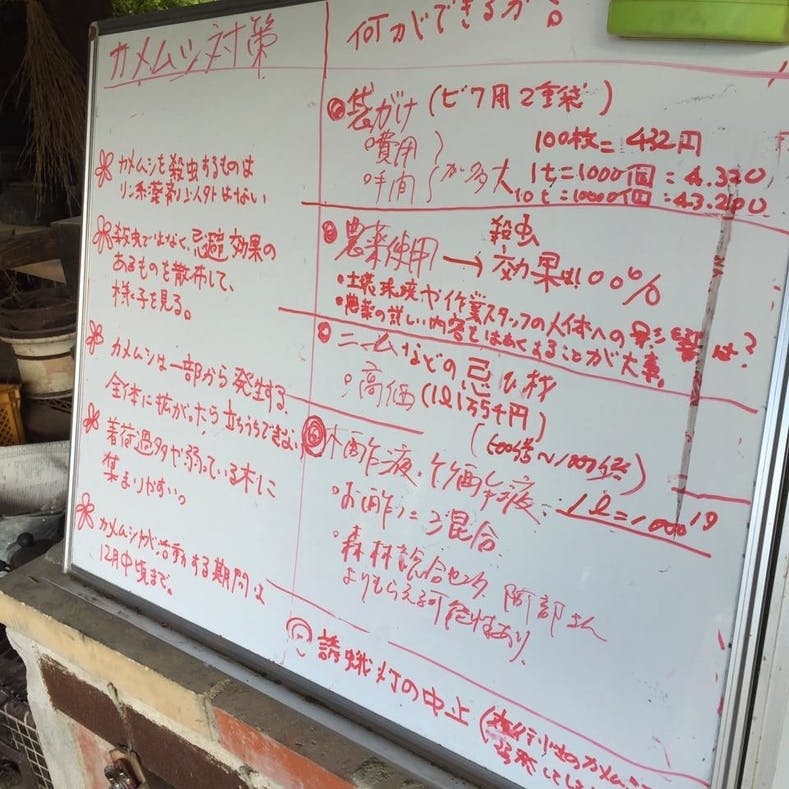 カメムシ対策
カメムシを殺虫するものは
リン系薬剤以外はない
殺虫ではなく、忌避効果の
あるものを散布して、
様子を見る。
カメムシは一部から発生する
全体に拡がったら立ちうちできない
着荷過多や弱っている木に
集まりやすい。
カメムシが活動する期間は
12月中頃まで。
何ができるか。
袋がけ (ビワ用2重袋)
費用
手間 が多大
100枚=432円
1t=1000個:4.320
10t=10000個:43.200
農薬使用 → 殺虫効果100%
・土壌環境や作業スタッフの人体への影響は?
・農薬の詳しい内容をはあくすることが大事。
ニームなどの忌ひ材
高価 (1ℓ1万5千円)
(500倍~1000倍)
木酢液・竹酢液: 1ℓ=1000円
・お酢に 混合
・森林総合センター 阿部さん
よりもらえる可能性あり
誘蛾灯の中止